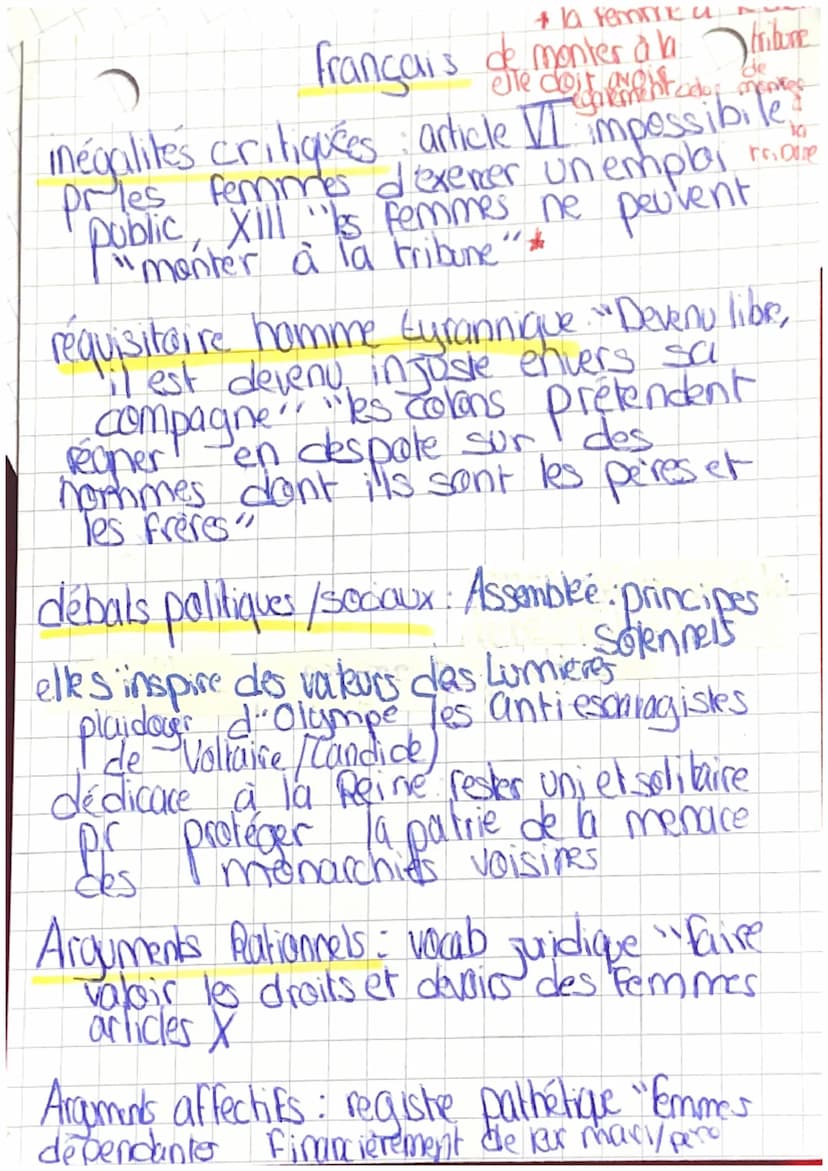 * la femme a
de monter à la tribune
français
elle doit avoir
également celui de monter à la tribune
inégalités critiquées : article VI impossibile
pr les femmes d'exercer un emploi
public, XIII "ls femmes ne peuvent
"monter à la tribune" *
réquisitoire homme tyrannique : "Devenu libre,
il est devenu injuste envers sa
compagne" "les colons prétendent
régner en despote sur des
hommes dont ils sont les pères et
les frères"
débats politiques /sociaux : Assemblée : principes
solennels
elle s'inspire des valeurs des Lumières
plaidoyer d'Olympe les antiesclavagistes
de Voltaire (Candide)
dédicace à la Reine : rester uni et solitaire
pr protéger la patrie de la menace
des monarchies voisines
Arguments Rationnels : vocab juridique "faire
valoir les droits et devoirs des Femmes
articles X
Arguments affectifs : registre pathétique "Femmes
dépendantes financièrement de leur mari/père